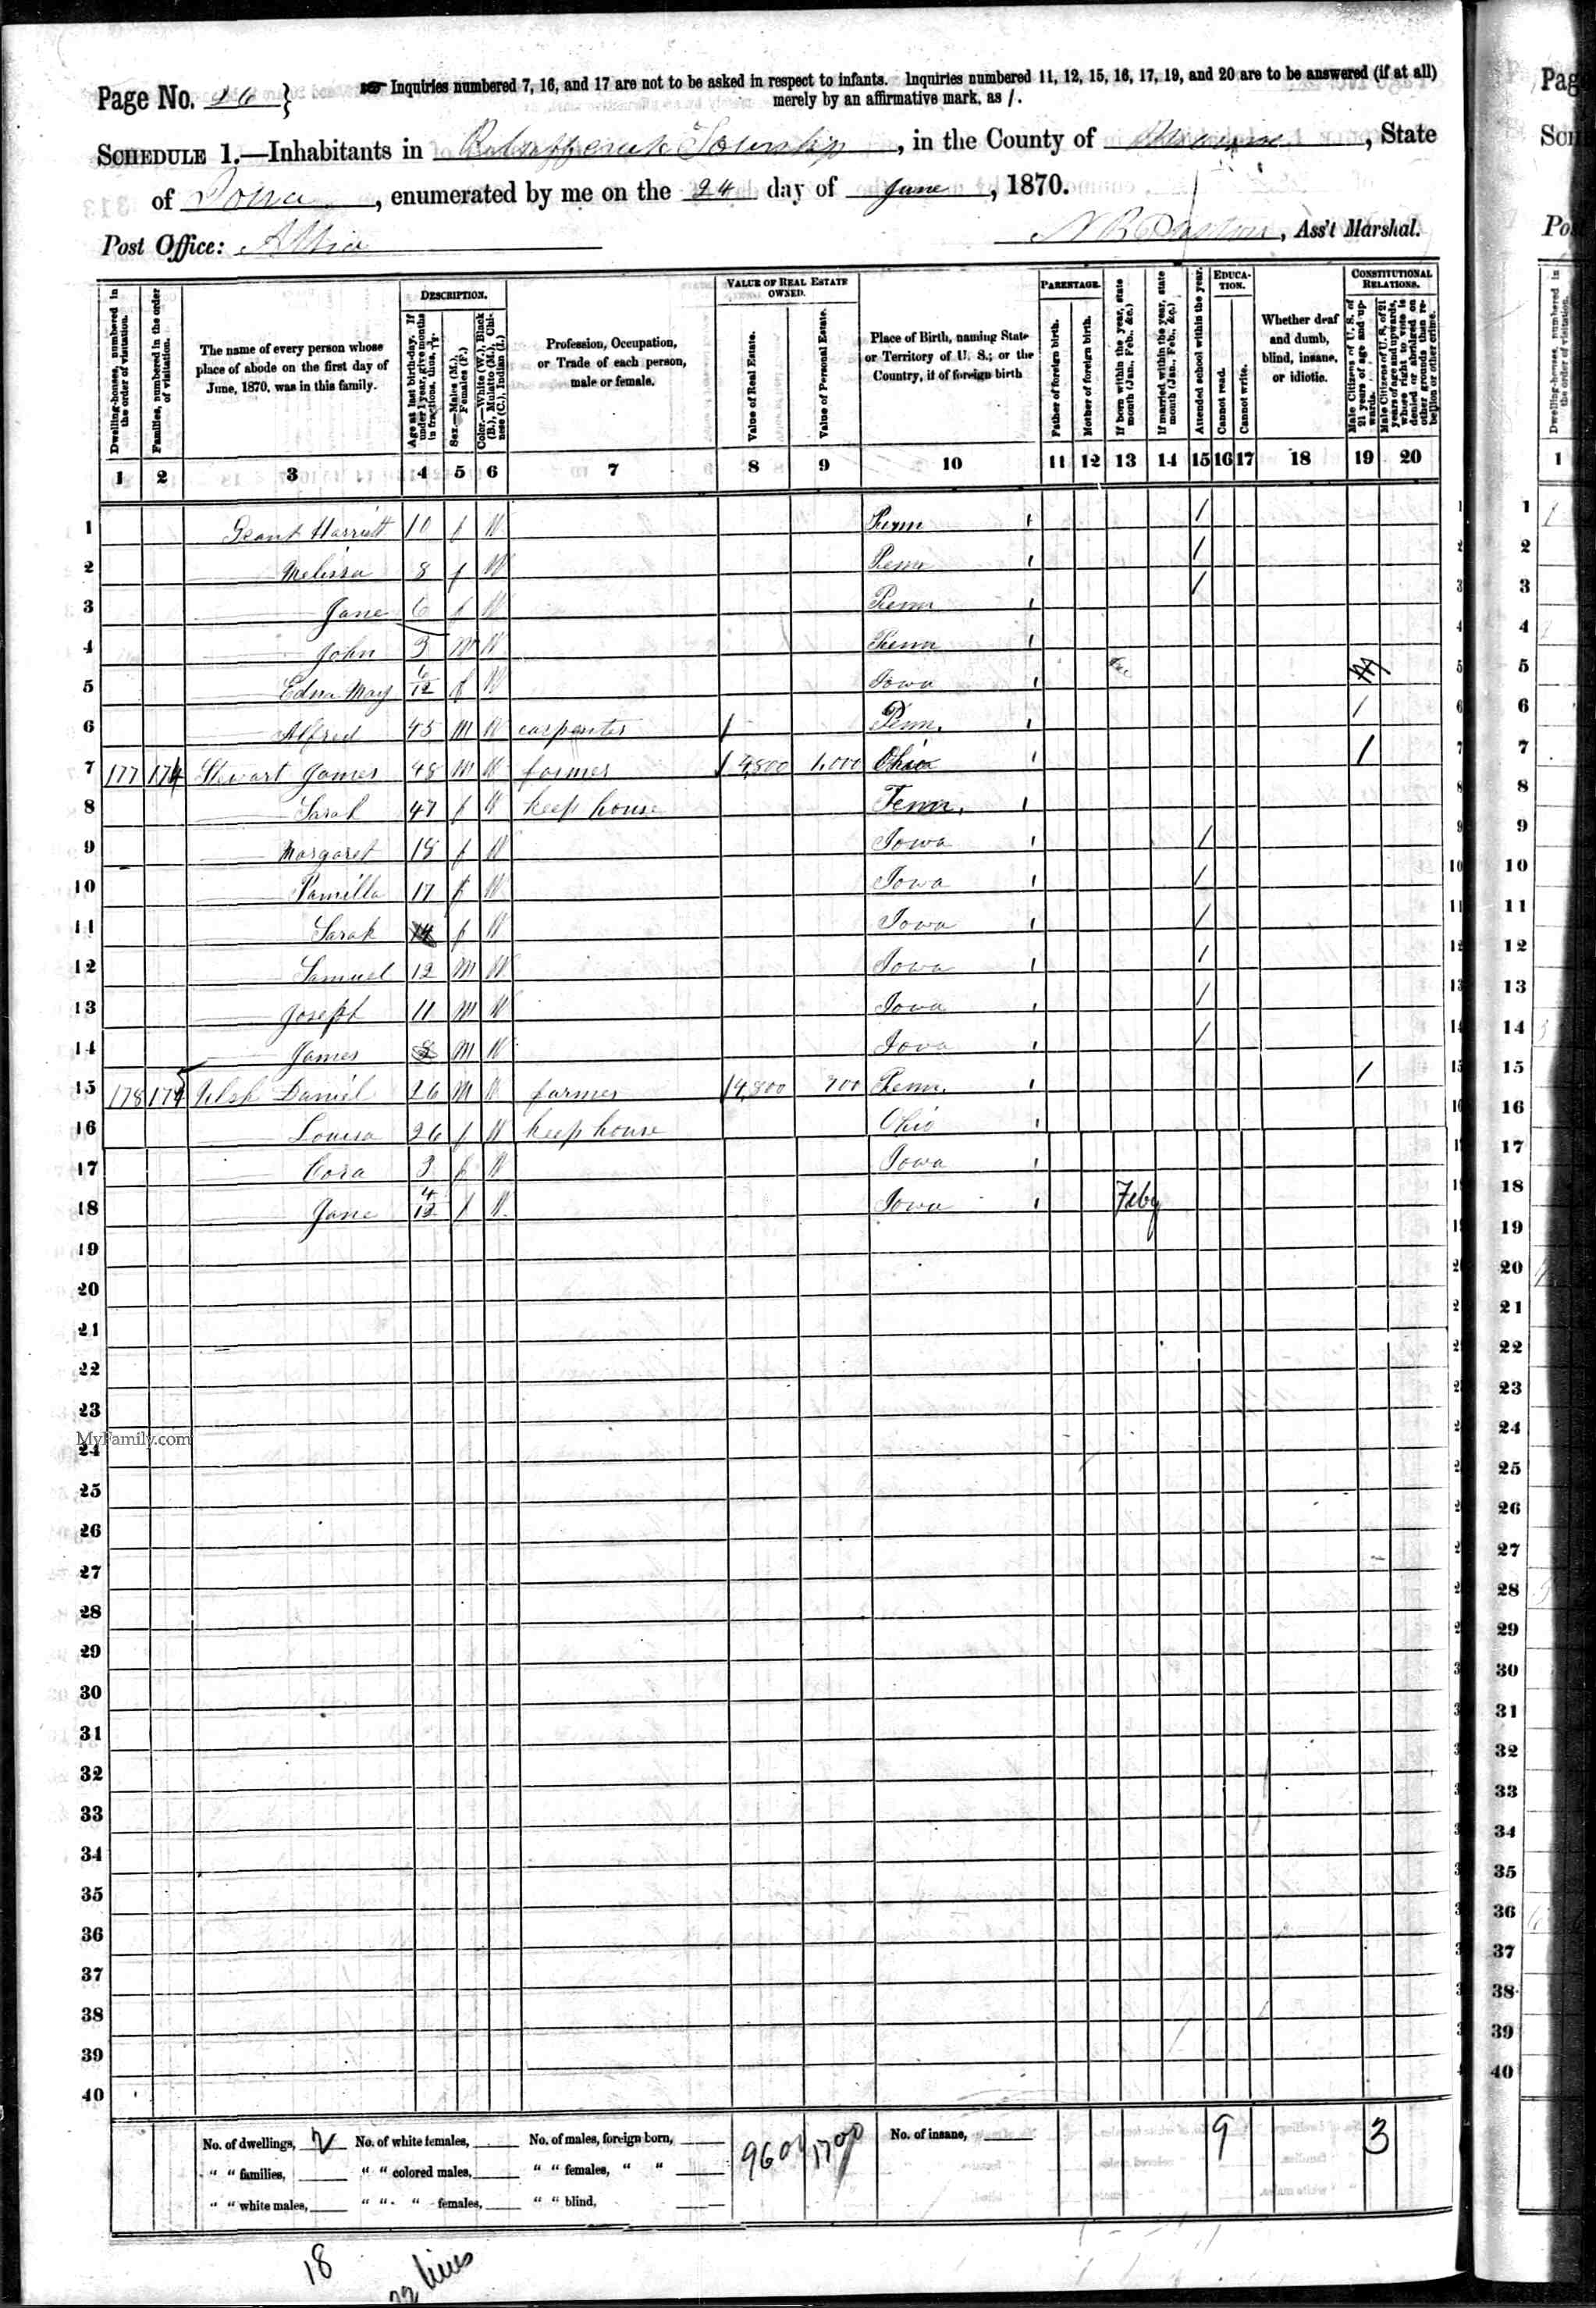 Page No. 26 } Inquiries numbered 7, 16, and 17 are not to be asked in respect to infants. Inquiries numbered 11, 12, 15, 16, 17, 19, and 20 are to be answered (if at all)
merely by an affirmative mark, as /.
SCHEDULE 1.—Inhabitants in Township, in the County of, State
of Iowa, enumerated by me on the 24 day of June, 1870.
Post Office: Albia, Ass't Marshal.
Dwelling-houses, numbered in the order of visitation.
Families, numbered in the order of visitation.
The name of every person whose place of abode on the first day of June, 1870, was in this family.
DESCRIPTION.
Age at last birth-day. If under 1 year, give months in fractions, thus,
Sex.—Males (M.), Females (F.)
Color.—White (W.), Black (B.), Mulatto (M.), Chinese (C.), Indian (I.)
Profession, Occupation, or Trade of each person, male or female.
VALUE OF REAL ESTATE OWNED.
Value of Real Estate.
Value of Personal Estate.
Place of Birth, naming State or Territory of U. S.; or the Country, if of foreign birth
PARENTAGE.
Father of foreign birth.
Mother of foreign birth.
If born within the year, state month (Jan. Feb., &c.)
If married within the year, state month (Jan. Feb., &c.)
Attended school within the year.
EDUCATION.
Cannot read.
Cannot write.
Whether deaf and dumb, blind, insane, or idiotic.
CONSTITUTIONAL RELATIONS.
Male Citizens of U. S. of 21 years of age and upwards.
Male Citizens of U. S. of 21 years of age and upwards, whose right to vote is denied or abridged on other grounds than rebellion or other crime.
1 2 3 4 5 6 7 8 9 10 11 12 13 14 15 16 17 18 19 20
1 Grant Harriett 10 f W Penn /
2 Melissa 8 f W Penn /
3 Jane 6 f W Penn /
4 John 3 M W Penn
5 Edna May 6/12 f W Iowa
6 Alfred 45 M W carpenter Penn. /
7 177 174 Stewart James 48 M W farmer 4,800 1,000 Ohio /
8 Sarah 47 f W keep house Tenn.
9 Margaret 18 f W Iowa /
10 Pamilla 17 f W Iowa /
11 Sarah 14 f W Iowa /
12 Samuel 12 M W Iowa /
13 Joseph 11 M W Iowa /
14 James M W Iowa /
15 178 Daniel 26 M W farmer 4,800 700 Penn. /
16 Louisa 26 f W keep house Ohio
17 Cora 3 f W Iowa
18 Jane 4/12 f W Iowa Feby
19
20
21
22
23
MyFamily.com
24
25
26
27
28
29
30
31
32
33
34
35
36
37
38
39
40
No. of dwellings, 2 No. of white females, No. of males, foreign born, 9600 1700 No. of insane, 9 3
" " families, " " colored males, " " females, " "
" " white males, " " " females, " " blind,
18
22 lines